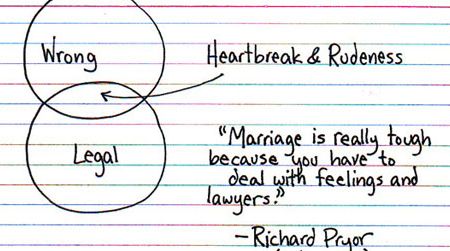 Wrong
Heartbreak & Rudeness
Legal
"Marriage is really tough
because you have to
deal with feelings and
lawyers."
—Richard Pryor